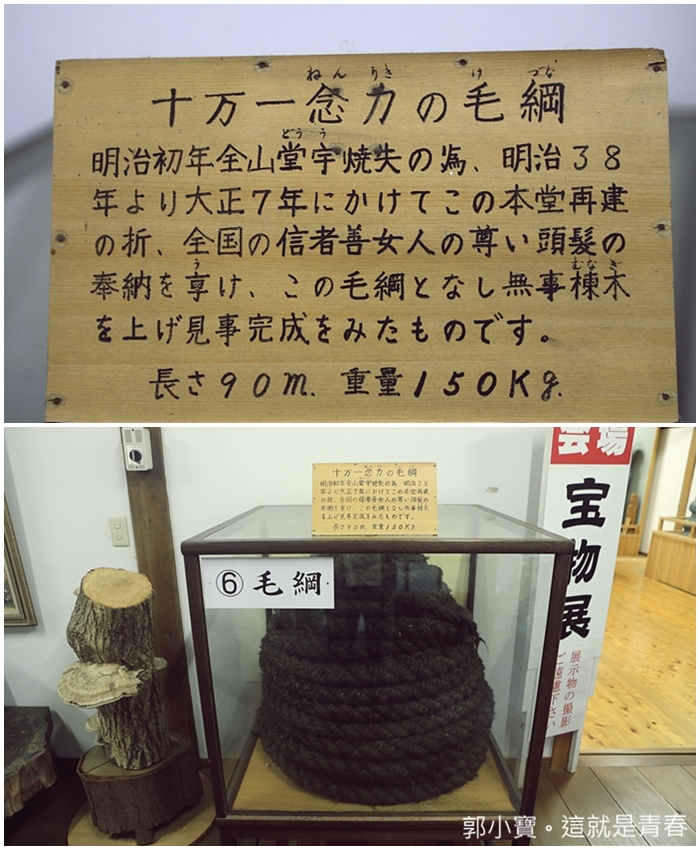 ねん りき け づな
十万一念力の毛綱
どう う
明治初年全山堂宇焼失の為、明治38
年より大正7年にかけてこの本堂再建
の折、全国の信者善女人の尊い頭髪の
う むなぎ
奉納を享け、この毛綱となし無事棟木
を上げ見事完成をみたものです。
長さ90m. 重量150Kg.
十万一念力の毛綱
明治初年全山堂宇焼失の為、明治38
年より大正7年にかけてこの本堂再建
の折、全国の信者善女人の尊い頭髪の
奉納を享け、この毛綱となし無事棟木
を上げ見事完成をみたものです。
長さ90m. 重量150Kg
⑥毛綱
会場
宝物展
展示物の撮影
ご遠慮下さい
郭小寶。這就是青春